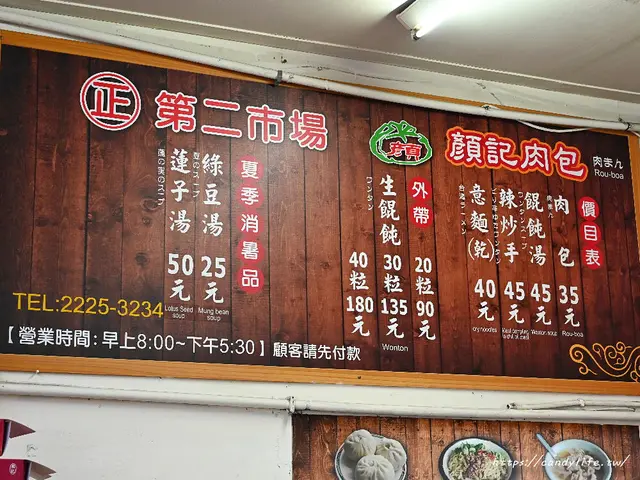 正 第二市場
顏記
顏記肉包
肉まん
Rou-boa
價目表
肉包 35元
肉まん
Rou-boa
餛飩湯 45元
ワンタンスープ
Wonton soup
辣炒手 45元
意麵(乾) 40元
台湾ラーメン
dry noodles
外帶
生餛飩
ワンタン
20粒 90元
30粒 135元
40粒 180元
Wonton
夏季消暑品
綠豆湯 25元
Mung bean soup
蓮子湯 50元
蓮の実のスープ
Lotus Seed soup
TEL:2225-3234
【營業時間:早上8:00~下午5:30】顧客請先付款
https://candylife.tw/